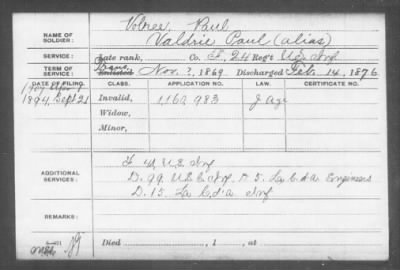 Voltree, Paul
NAME OF SOLDIER: Valdrie Paul (alias)
SERVICE: Late rank, Co. F, 24 Reg't U.S. Inf
TERM OF SERVICE: Enlisted Nov. ?, 1869. Discharged Feb. 14, 1876
DATE OF FILING. CLASS. APPLICATION NO. LAW. CERTIFICATE NO.
1894, Sept 21 Invalid, 1160 983
Widow,
Minor,
F 41 U.S. Inf
ADDITIONAL SERVICES: D. 99 U.S.C. Inf. 5. La C.d'a Engineers
D. 15. La C.d'a Inf
REMARKS:
Died , 1 , at